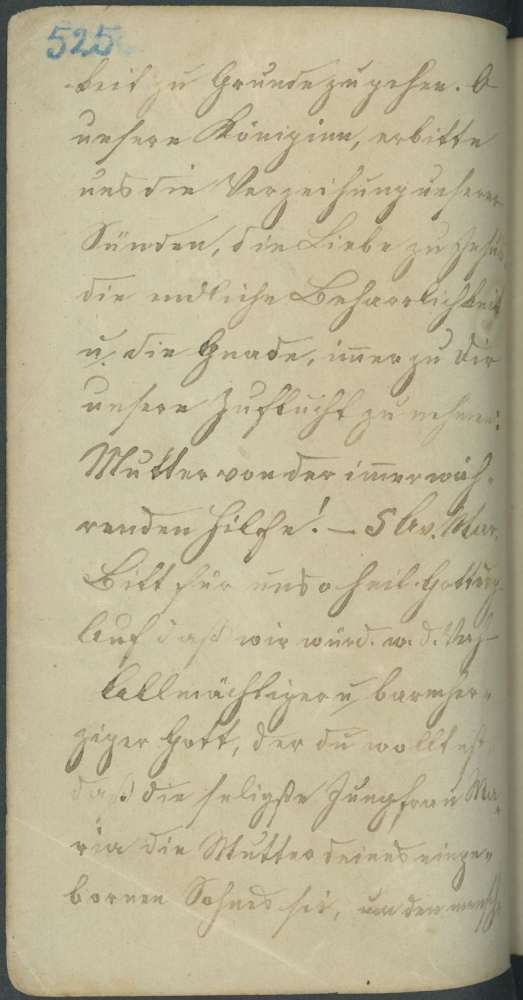 525
keit zu Grunde zu gehen. O
unsere Königinn, erbitte
uns die Verzeihung unserer
Sünden, die Liebe zu Jesu,
die endliche Beharrlichkeit
u. die Gnade, im̄er zu Dir
unsere Zuflucht zu nehmen:
Mutter von der im̄erwäh-
renden Hilfe! – 5 Av. Mar.
Bitt für uns o heil. Gottesg.
Auf daß wir würd. w. d. Verh-
Allmächtiger u. barmher-
ziger Gott, der du wolltest
daß die seligste Jungfrau Ma-
ria die Mutter deines einge-
bornen Sohnes sei, um den